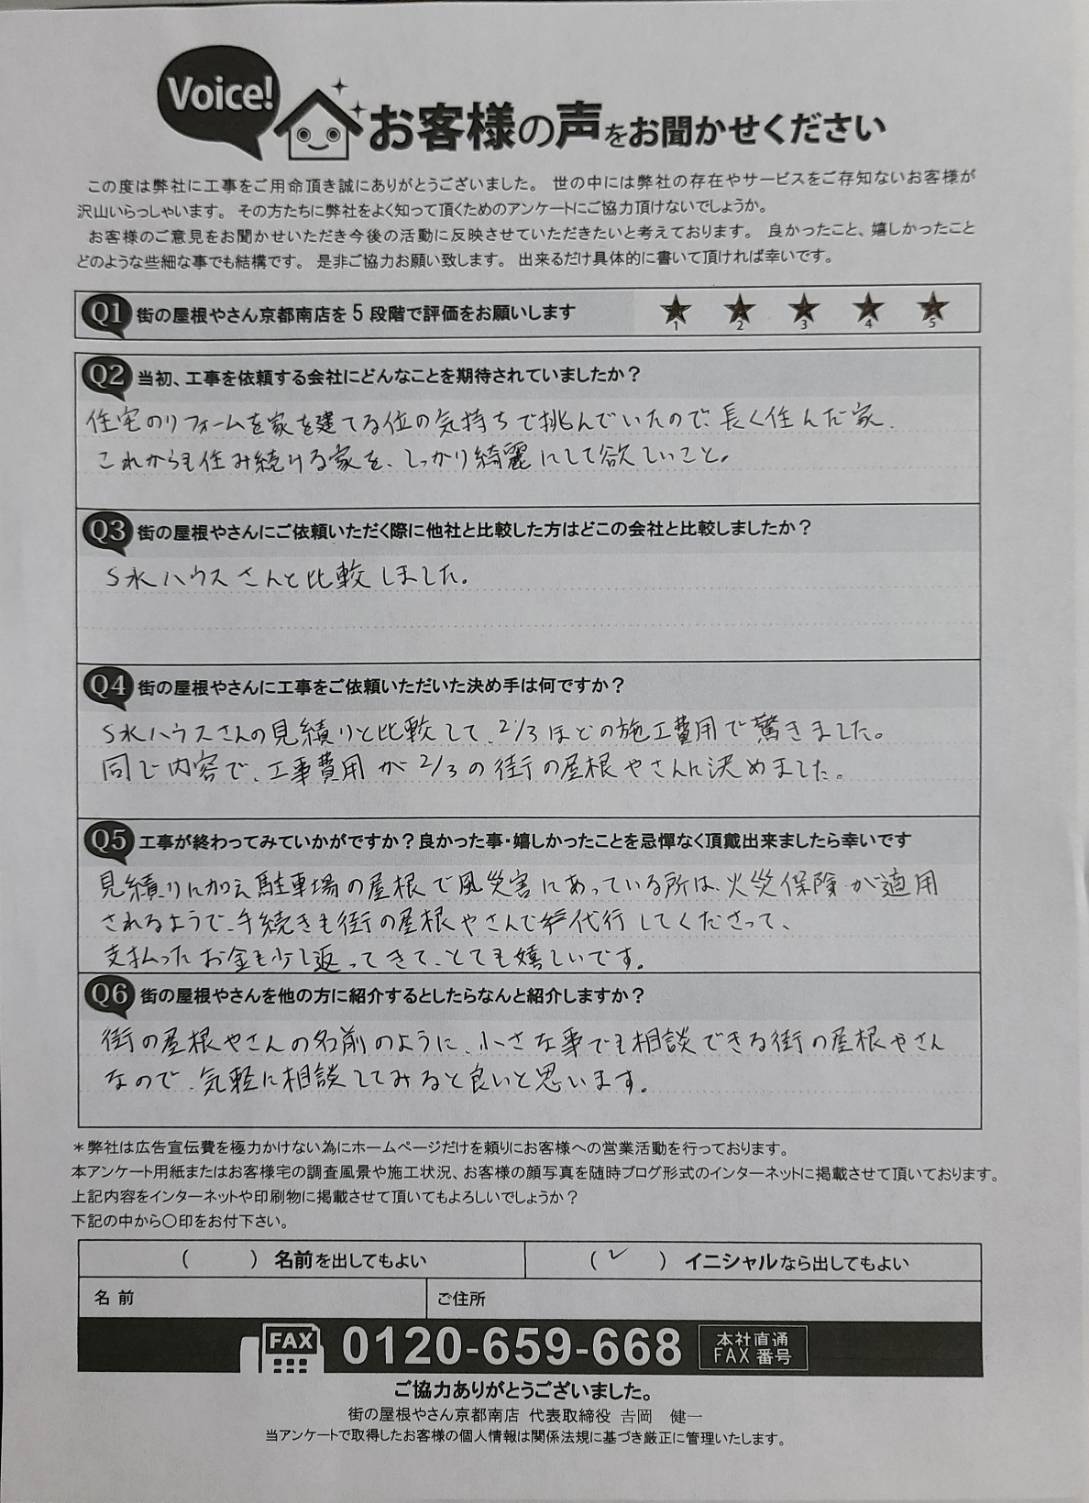 Voice!
お客様の声をお聞かせください
この度は弊社に工事をご用命頂き誠にありがとうございました。 世の中には弊社の存在やサービスをご存知ないお客様が
沢山いらっしゃいます。 その方たちに弊社をよく知って頂くためのアンケートにご協力頂けないでしょうか。
お客様のご意見をお聞かせいただき今後の活動に反映させていただきたいと考えております。 良かったこと、嬉しかったこと
どのような些細な事でも結構です。 是非ご協力お願い致します。 出来るだけ具体的に書いて頂ければ幸いです。
Q1 街の屋根やさん京都南店を5段階で評価をお願いします ★1 ★2 ★3 ★4 ★5
Q2 当初、工事を依頼する会社にどんなことを期待されていましたか？
住宅のリフォームを家を建てる位の気持ちで挑んでいたので、長く住んだ家、
これからも住み続ける家を、しっかり綺麗にして欲しいこと。
Q3 街の屋根やさんにご依頼いただく際に他社と比較した方はどこの会社と比較しましたか？
S水ハウスさんと比較しました。
Q4 街の屋根やさんに工事をご依頼いただいた決め手は何ですか？
S水ハウスさんの見積りと比較して、2/3ほどの施工費用で驚きました。
同じ内容で、工事費用が2/3の街の屋根やさんに決めました。
Q5 工事が終わってみていかがですか？良かった事・嬉しかったことを忌憚なく頂戴出来ましたら幸いです
見積りに加え駐車場の屋根で風災害にあっている所は、火災保険が適用
されるようで、手続きも街の屋根やさんで代行してくださって、
支払ったお金も少し返ってきて、とても嬉しいです。
Q6 街の屋根やさんを他の方に紹介するとしたらなんと紹介しますか？
街の屋根やさんの名前のように、小さな事でも相談できる街の屋根やさん
なので、気軽に相談してみると良いと思います。
＊弊社は広告宣伝費を極力かけない為にホームページだけを頼りにお客様への営業活動を行っております。
本アンケート用紙またはお客様宅の調査風景や施工状況、お客様の顔写真を随時ブログ形式のインターネットに掲載させて頂いております。
上記内容をインターネットや印刷物に掲載させて頂いてもよろしいでしょうか？
下記の中から○印をお付下さい。
（　　）名前を出してもよい （✓）イニシャルなら出してもよい
名 前 ご住所
FAX 0120-659-668 本社直通
FAX番号
ご協力ありがとうございました。
街の屋根やさん京都南店 代表取締役 吉岡 健一
当アンケートで取得したお客様の個人情報は関係法規に基づき厳正に管理いたします。